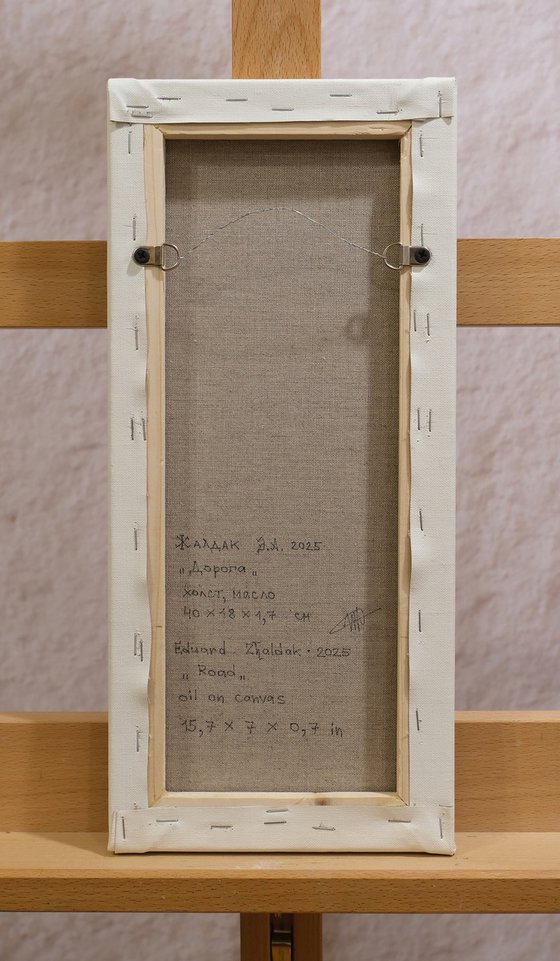 Жалдак Э.А. 2025
„Дорога„
холст, масло
40 × 18 × 1,7 см
Eduard Zhaldak · 2025
„Road„
oil on canvas
15,7 × 7 × 0,7 in